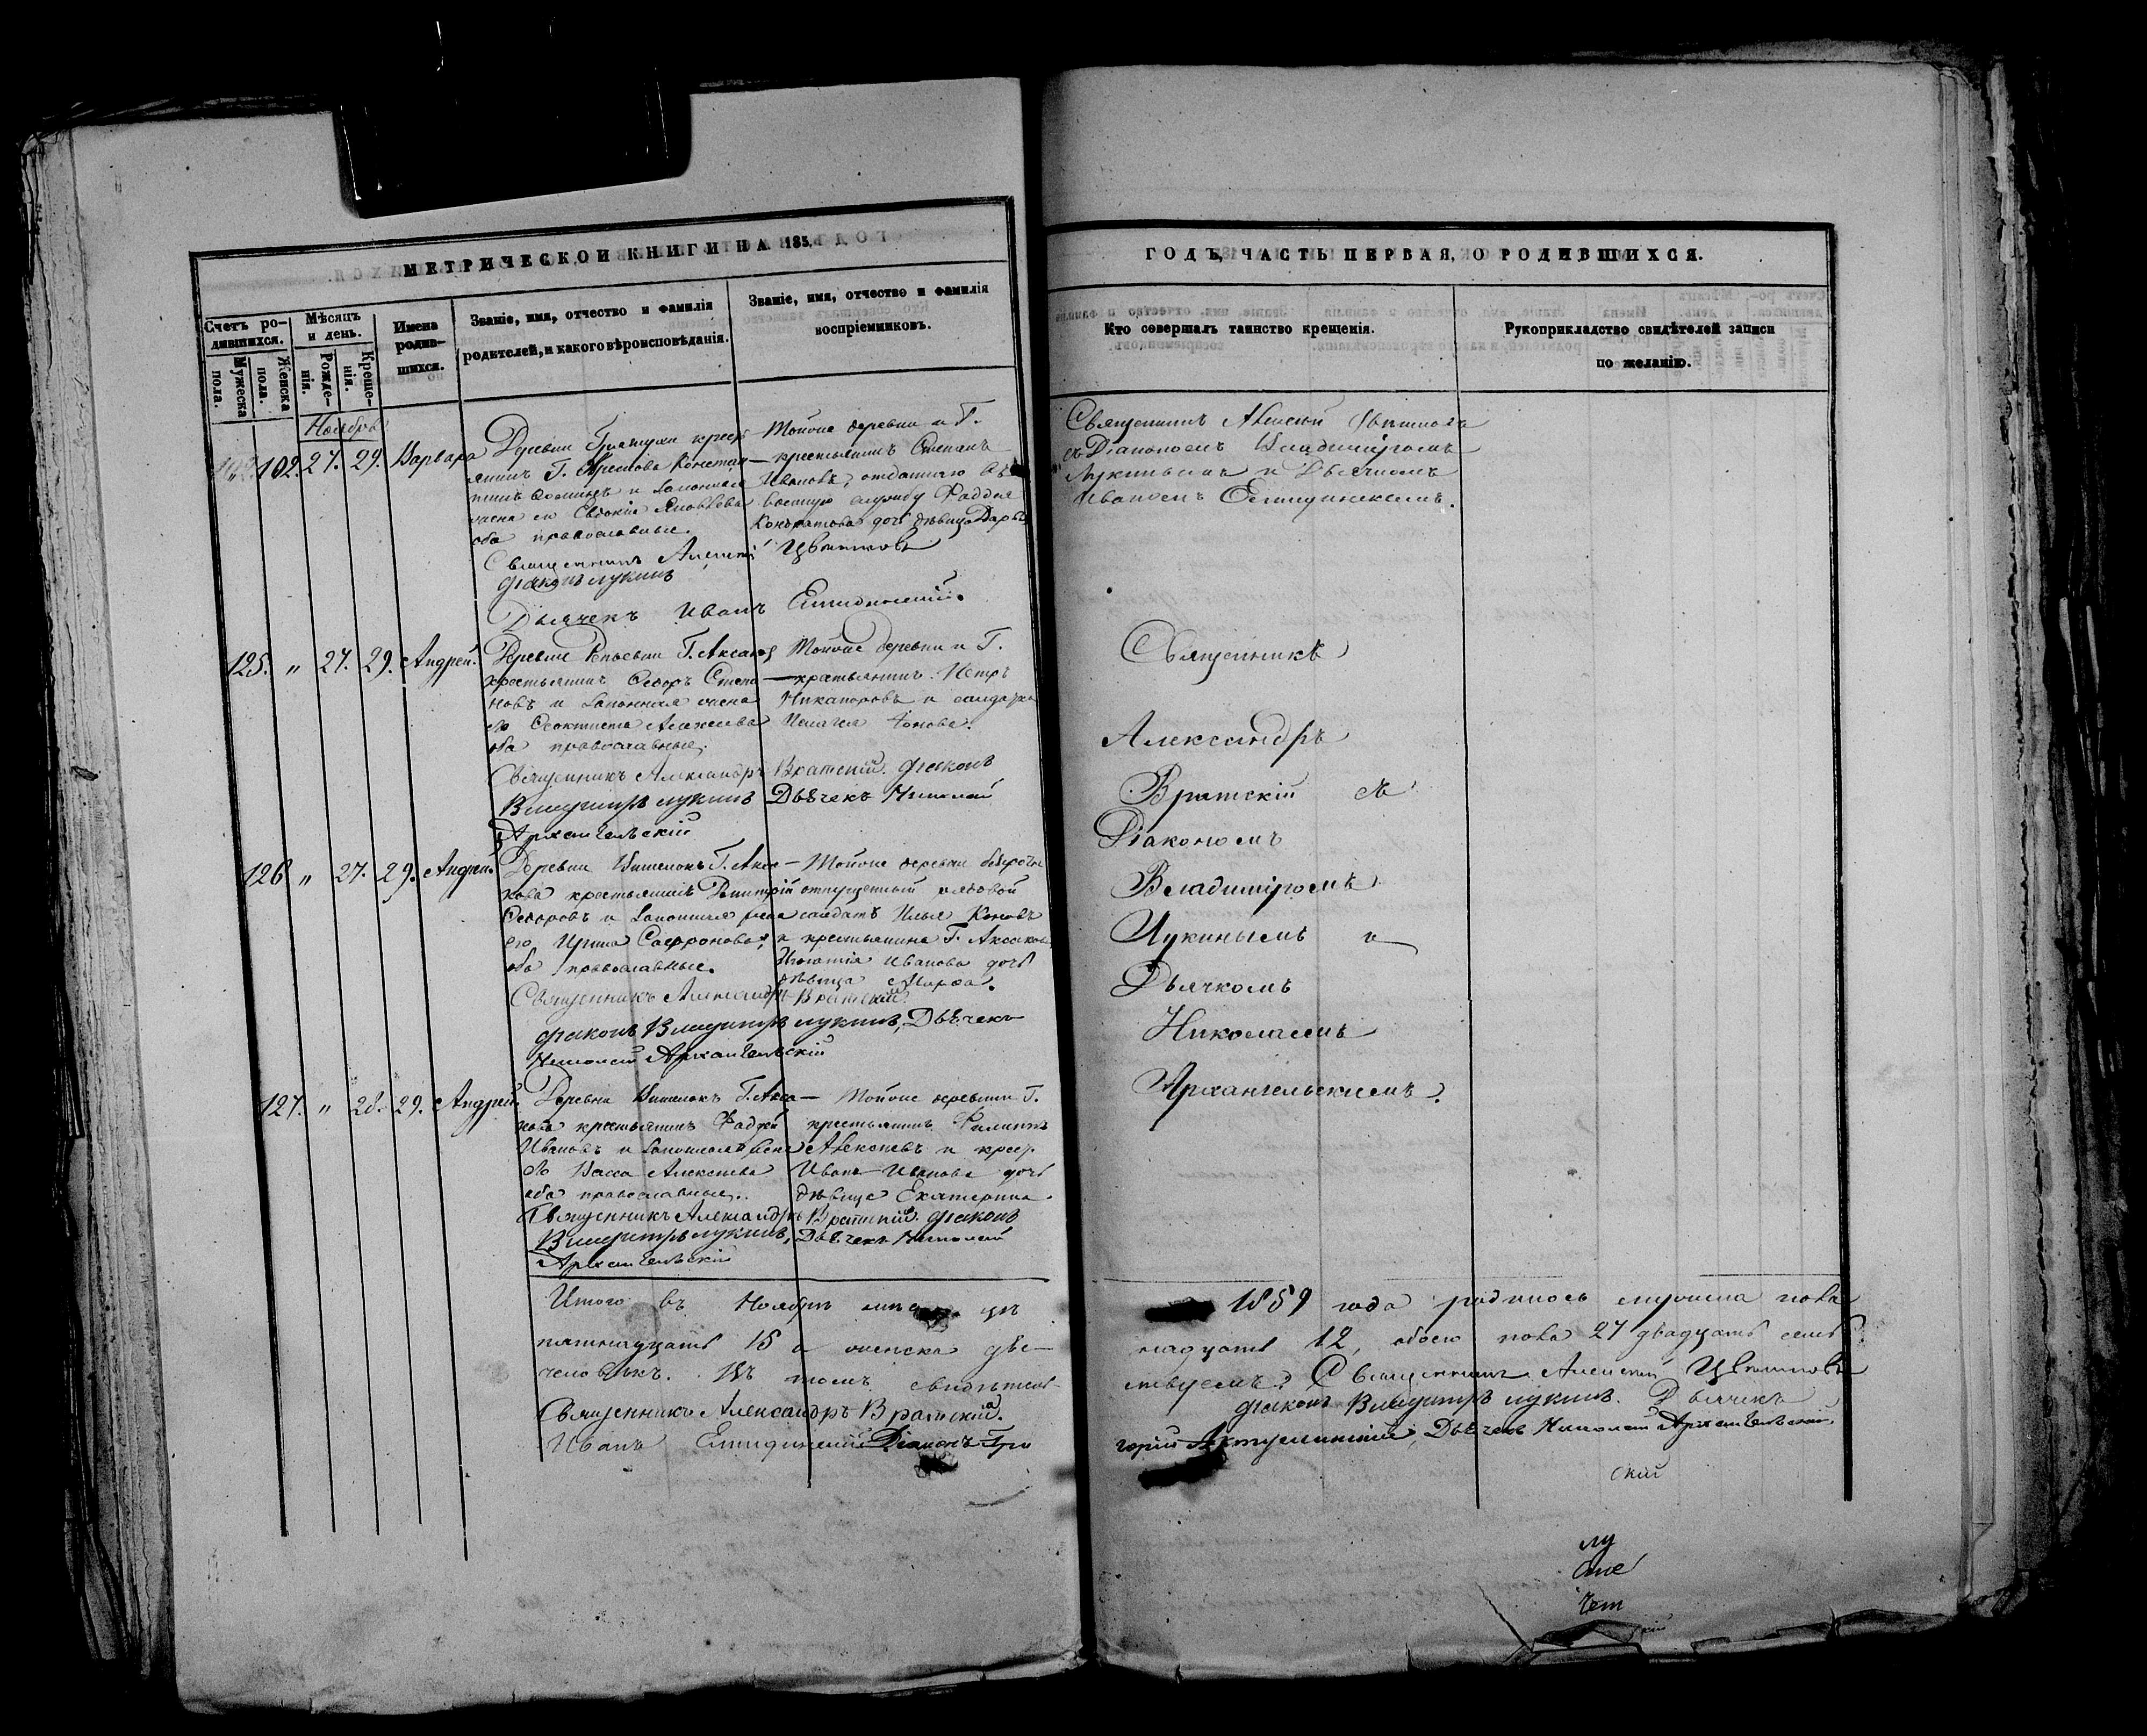 МЕТРИЧЕСКОЙ КНИГИ НА 185
Счетъ ро-
дившихся.
Мѣсяцъ
и день.
Имена
родив-
шихся.
Званіе, имя, отчество и фамилія
родителей, и какого вѣроисповѣданія.
Званіе, имя, отчество и фамилія
воспріемниковъ.
Мужеска
пола.
Женска
пола.
Рожде-
нія.
Креще-
нія.
Ноябрь
102. 27. 29. Варвара
Деревни крест
янинъ Г.
и законная
жена его Евдокія Яковлева
оба православные.
Тойже деревни и Г.
крестьянинъ Степанъ
Ивановъ, отданнаго въ
военную службу Фаддея
Кондратова дочь дѣвица Дарья
Священникъ Алексій Цвѣтковъ
Діаконъ Лукинъ
Дьячекъ Иванъ
125. " 27. 29. Андрей.
Деревни Г. Аксакова
крестьянинъ Ѳедоръ Степа
новъ и законная жена
его Ѳеоктиста Алексѣева
оба православные.
Тойже деревни и Г.
крестьянинъ Петръ
Никаноровъ и солдатка
Пелагея
Священникъ Александръ Вратскій. Діаконъ
Владиміръ Лукинъ Дьячекъ Николай
Архангельскій
126 " 27. 29. Андрей.
Деревни Г. Акса
кова крестьянинъ Димитрій
Ѳедоровъ и законная жена
его Ирина Сафронова,
оба православные.
Тойже деревни безсрочно
отпущенный рядовой
солдатъ Илья
и крестьянина Г. Аксакова
Игнатія Иванова дочь
дѣвица Марѳа.
Священникъ Александръ Вратскій
Діаконъ Владиміръ Лукинъ, Дьячекъ
Николай Архангельскій
127. " 28. 29. Андрей
Деревни Г. Акса
кова крестьянинъ Фадѣй
Ивановъ и законная жена
его Васса Алексѣева
оба православные.
Тойже деревни Г.
крестьянинъ Филиппъ
Алексѣевъ и крест.
Ивана Иванова дочь
дѣвица Екатерина.
Священникъ Александръ Вратскій. Діаконъ
Владиміръ Лукинъ, Дьячекъ Николай
Архангельскій
Итого въ Ноябрѣ
пятнадцать 15 а женска двѣ-
человѣкъ. Въ томъ свидѣтель-
Священникъ Александръ Вратскій.
Иванъ Діаконъ Гри
ГОДЪ, ЧАСТЬ ПЕРВАЯ, О РОДИВШИХСЯ.
Кто совершалъ таинство крещенія.
Рукоприкладство свидѣтелей записи
по желанію.
Священникъ Алексій Цвѣтковъ
съ Діакономъ Владиміромъ
Лукинымъ и Дьячкомъ
Иваномъ
Священникъ
Александръ
Вратскій съ
Діакономъ
Владиміромъ
Лукинымъ и
Дьячкомъ
Николаемъ
Архангельскимъ.
1859 года родилось мужеска пола
надцать 12, обоего пола 27 двадцать семь
ствуемъ: Священникъ Алексій Цвѣтковъ
Діаконъ Владиміръ Лукинъ. Дьячекъ
горій Дьячекъ Николай Архангельскій.
скій
лу
чет